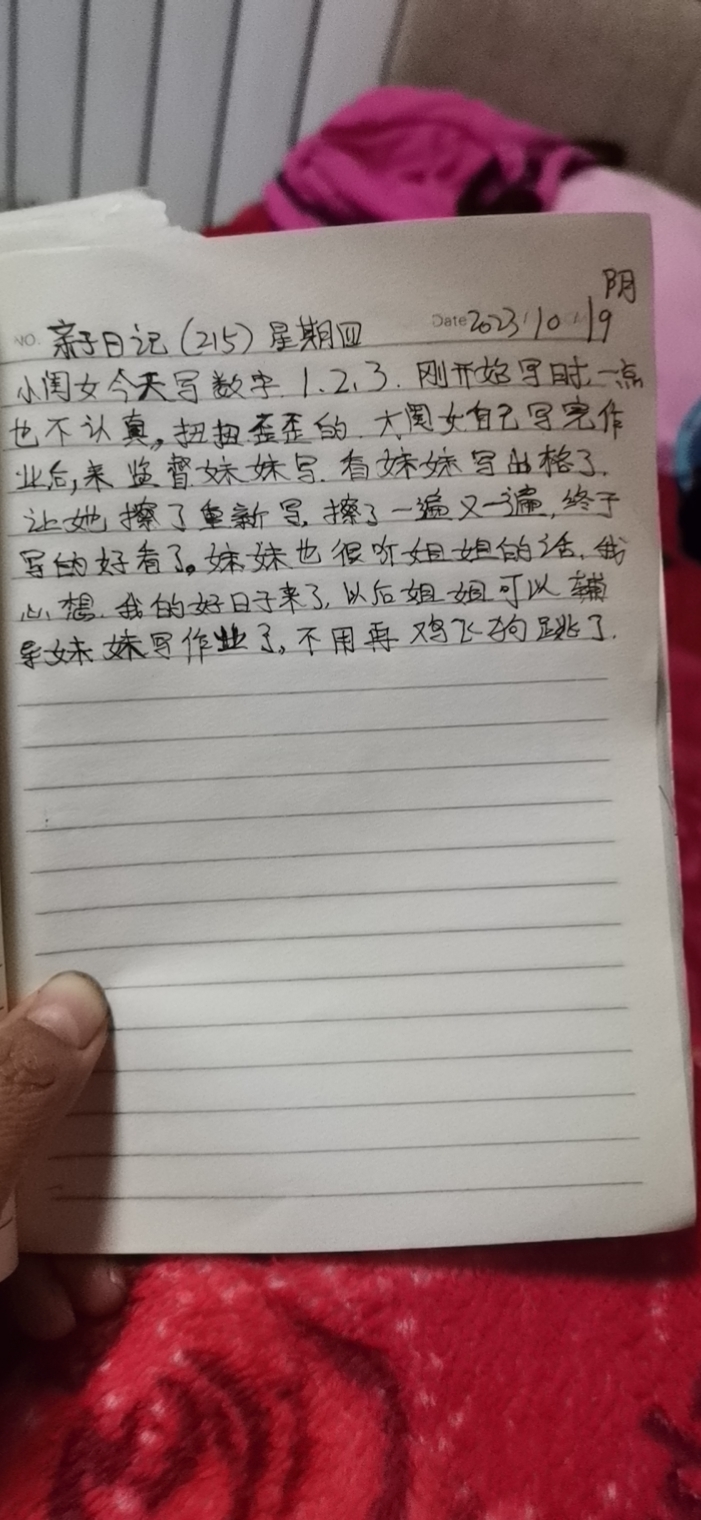 阴
NO. 亲子日记(215)星期四 Date 2023/10/19
小闺女今天写数字.1.2.3.刚开始写时.一点
也不认真,扭扭歪歪的.大闺女自己写完作
业后,来监督妹妹写.看妹妹写出格了.
让她擦了重新写.擦了一遍又一遍,终于
写的好看了。妹妹也很听姐姐的话,我
心想.我的好日子来了,以后姐姐可以辅
导妹妹写作业了,不用再鸡飞狗跳了.